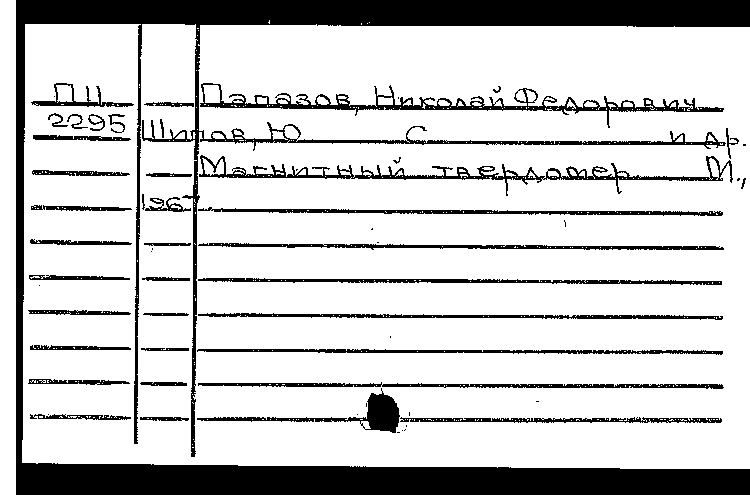 ПЦ Папазов, Николай Федорович
2295 Шипов, Ю С и др.
Магнитный твердомер М.,
1967.